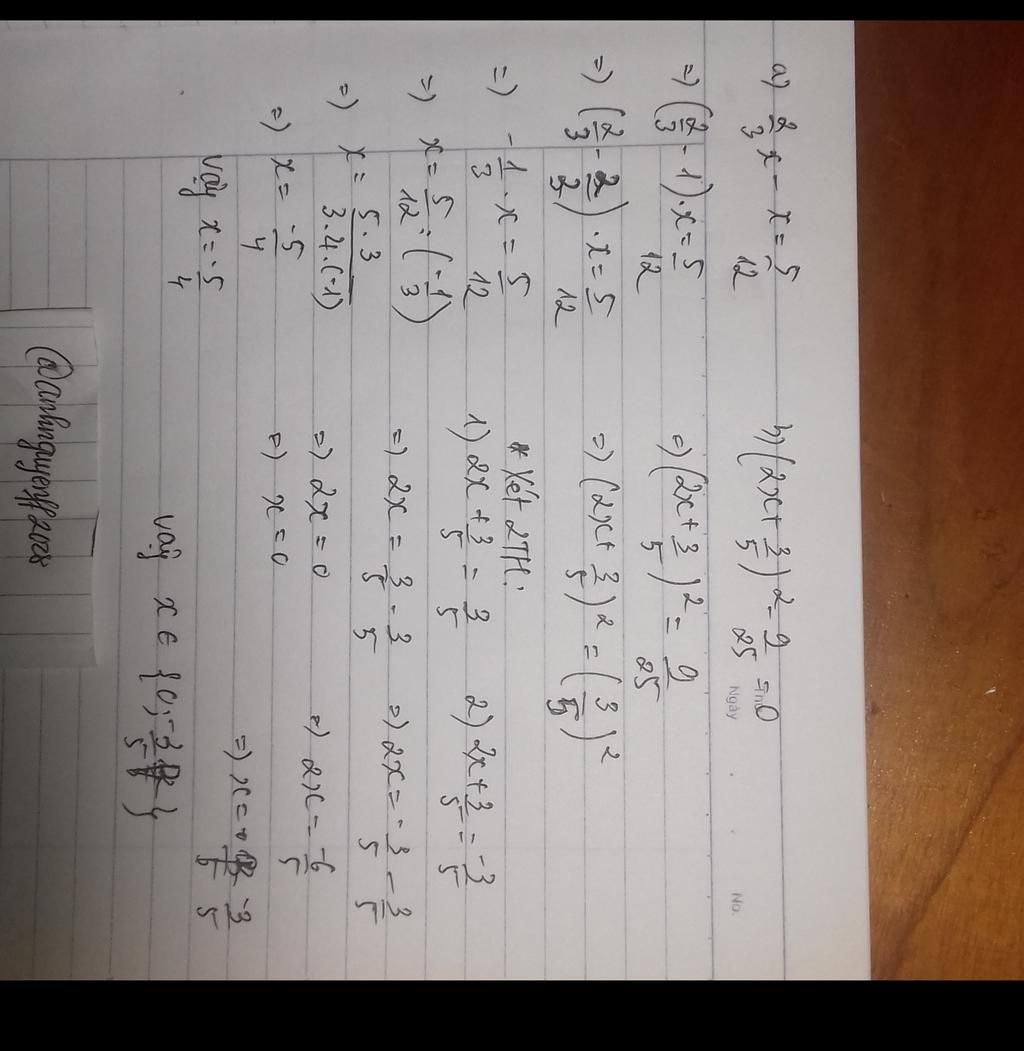 a) 2/3 x - x = 5/12
=) (2/3 - 1).x = 5/12
=) (2/3 - 3/3).x = 5/12
=) -1/3 . x = 5/12
=) x = 5/12 : (-1/3)
=) x = 5.3/3.4.(-1)
=) x = -5/4
Vậy x = -5/4
b) (2x + 3/5)² - 9/25 = 0
=) (2x + 3/5)² = 9/25
=) (2x + 3/5)² = (3/5)²
* Xét 2TH:
1) 2x + 3/5 = 3/5
=) 2x = 3/5 - 3/5
=) 2x = 0
=) x = 0
2) 2x + 3/5 = -3/5
=) 2x = -3/5 - 3/5
=) 2x = -6/5
=) x = -3/5
Vậy x ∈ {0; -3/5}
Ngày
No.
@anhnguyenff2008